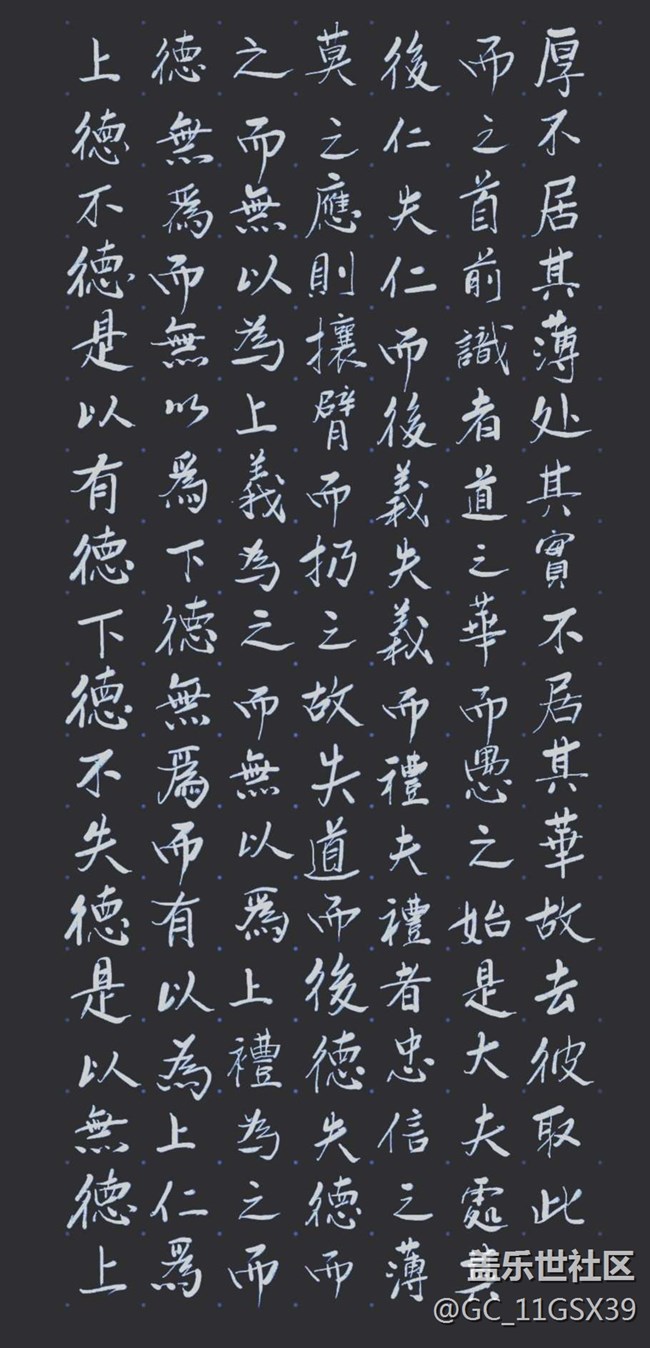 上德不德是以有德下德不失德是以無德上
德無爲而無以爲下德無爲而有以為上仁爲
之而無以為上義為之而無以爲上禮為之而
莫之應則攘臂而扔之故失道而後德失德而
後仁失仁而後義失義而禮夫禮者忠信之薄
而之首前識者道之華而愚之始是大夫處其
厚不居其薄处其實不居其華故去彼取此
盖乐世社区
@GC_11GSX39